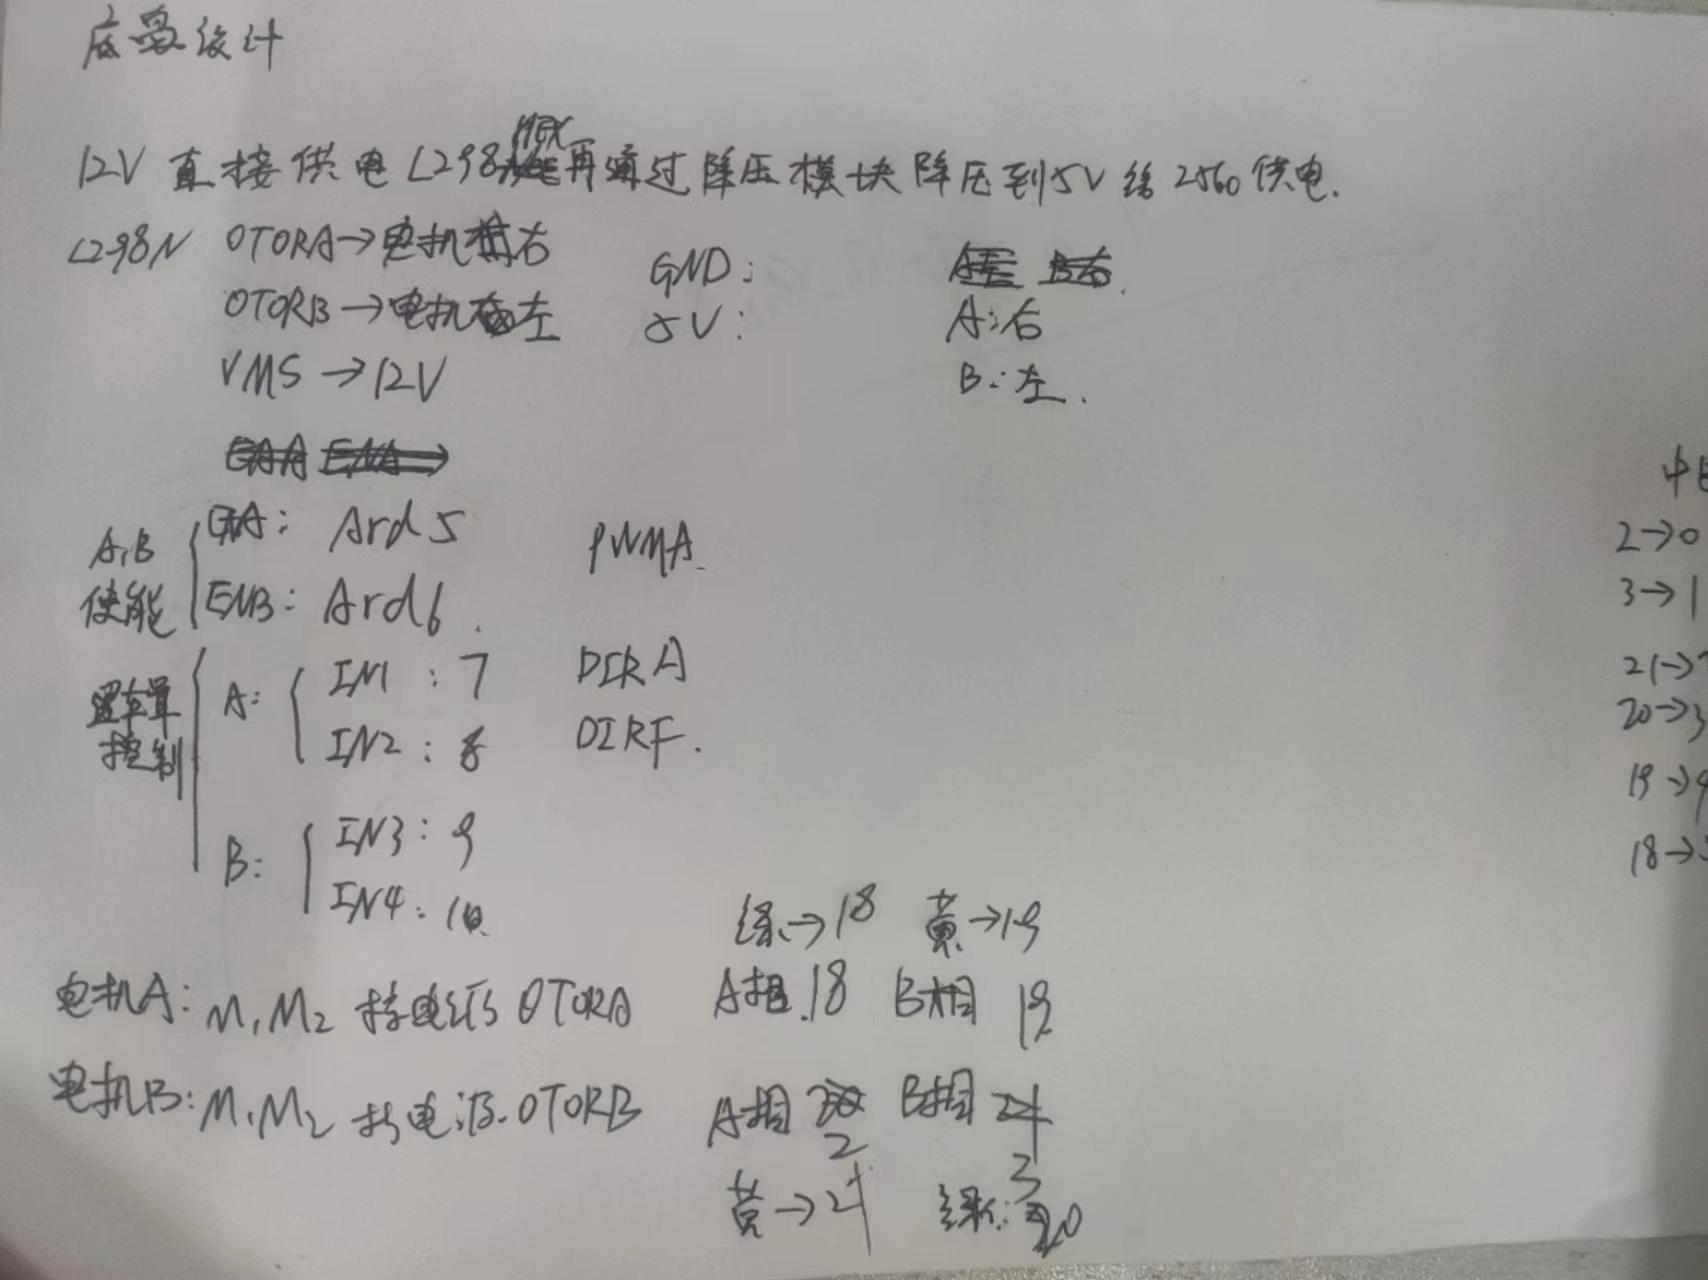 底盘设计
12V 直接供电 L298N 再通过降压模块降压到5V 给 2560 供电.
L298N OTORA→电机右
OTORB→电机左
VMS→12V
GND:
5V:
A:右
B:左.
A,B 使能
ENA: Ard 5
ENB: Ard 6.
PWMA.
控制
A: IN1: 7
IN2: 8
DIRA
DIRF.
B: IN3: 9
IN4: 10
绿→18 黄→19
电机A: M1 M2 接电源 OTORA A相.18 B相 19
电机B: M1 M2 接电源.OTORB A相 2 B相 3
黄→21 绿: 20
中
2→0
3→1
21→
20→3
19→4
18→